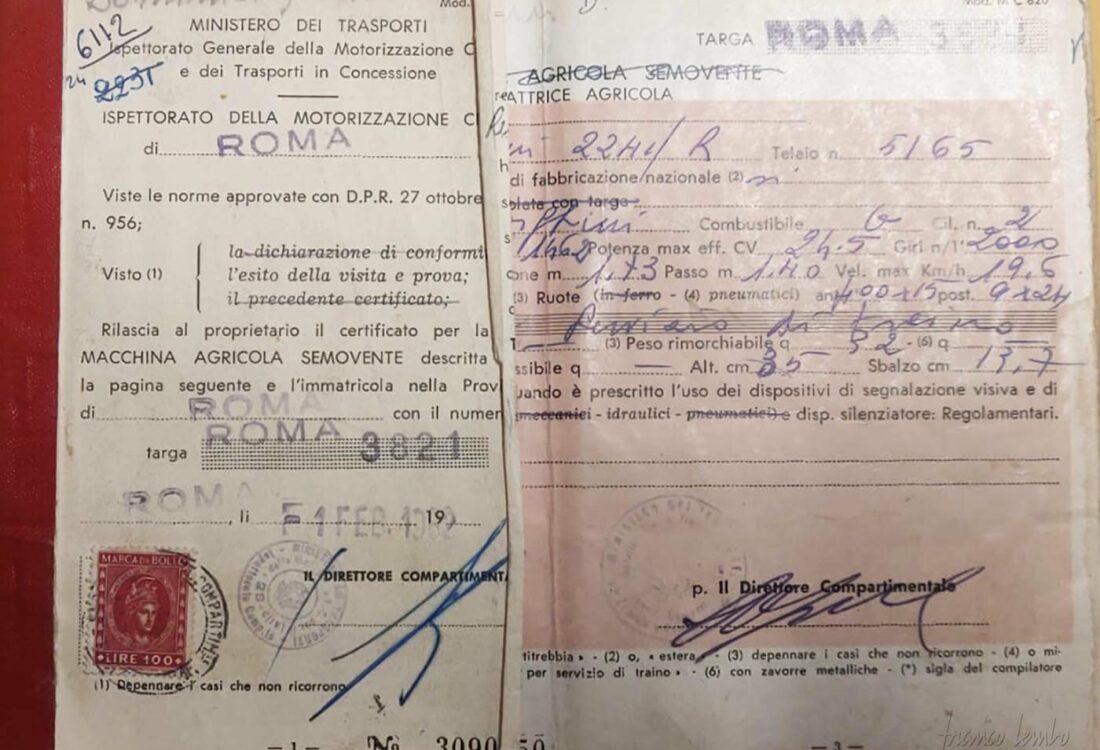 Mod.
MINISTERO DEI TRASPORTI
6112
Ispettorato Generale della Motorizzazione C
24
223T
e dei Trasporti in Concessione
ISPETTORATO DELLA MOTORIZZAZIONE C
di ROMA
Viste le norme approvate con D.P.R. 27 ottobre
n. 956;
Visto (1)
la dichiarazione di conformi
l'esito della visita e prova;
il precedente certificato;
Rilascia al proprietario il certificato per la
MACCHINA AGRICOLA SEMOVENTE descritta
la pagina seguente e l'immatricola nella Prov
di ROMA con il numer
ROMA
targa 3821
ROMA, li 1 FEB. 19
MARCA DA BOLLO
LIRE 100
IL DIRETTORE COMPARTIMENTA
(1) Depennare i casi che non ricorrono
— 1 — No 3090 50
TARGA ROMA
AGRICOLA SEMOVENTE
ATTRICE AGRICOLA
224/R Telaio n. 5165
di fabbricazione/nazionale (2)
solata con targa
Combustibile G Cil. n. 2
Potenza max eff. CV 24.5 Giri n/1' 2000
one m. 1.73 Passo m 1.40 Vel. max Km/h 19,6
(3) Ruote (in ferro - (4) pneumatici) ant 400x15 post. 9x24
di
(3) Peso rimorchiabile q 32 - (6) q —
ssibile q — Alt. cm 35 Sbalzo cm 13,7
uando è prescritto l'uso dei dispositivi di segnalazione visiva e di
meccanici - idraulici - pneumatici) e disp. silenziatore: Regolamentari.
p. Il Direttore Compartimentale
titrebbia » - (2) o, « estera » - (3) depennare i casi che non ricorrono - (4) o mi-
per servizio di traino » - (6) con zavorre metalliche - (*) sigla del compilatore
— 3 —
franco lembo